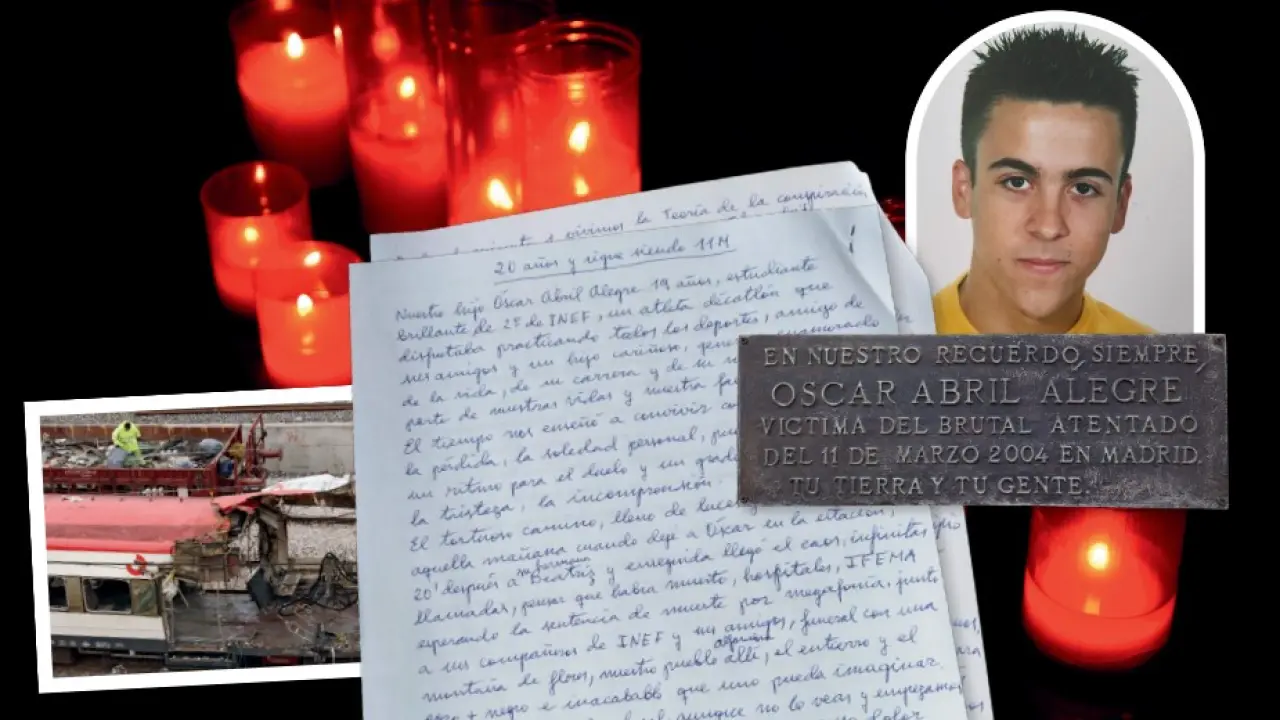 vivimos la Teoría de la conspiración
20 años y sigue siendo 11M
1
Nuestro hijo Óscar Abril Alegre 19 años, estudiante
brillante de 2º de INEF, un atleta decatlón que
disfrutaba practicando todos los deportes, amigo de
sus amigos y un hijo cariñoso, enamorado
de la vida, de su carrera y de su
parte de nuestras vidas y nuestra
El tiempo nos enseñó a convivir
la pérdida, la soledad personal,
un ritmo para el duelo y un
la tristeza, la incomprensión
El tortuoso camino, lleno de
aquella mañana cuando dejé a Óscar en la estación,
20' después a mi hermana Beatriz y enseguida llegó el caos, infinitas
llamadas, pensar que había muerto, hospitales, IFEMA
esperando la sentencia de muerte por megafonía, junto
a sus compañeros de INEF y sus amigos, funeral con una
montaña de flores, nuestro pueblo allí, el entierro y el
+ negro e inacabable que uno pueda imaginar.
aunque no lo veas y empezamos
dolor
EN NUESTRO RECUERDO, SIEMPRE,
OSCAR ABRIL ALEGRE
VICTIMA DEL BRUTAL ATENTADO
DEL 11 DE MARZO 2004 EN MADRID.
TU TIERRA Y TU GENTE.